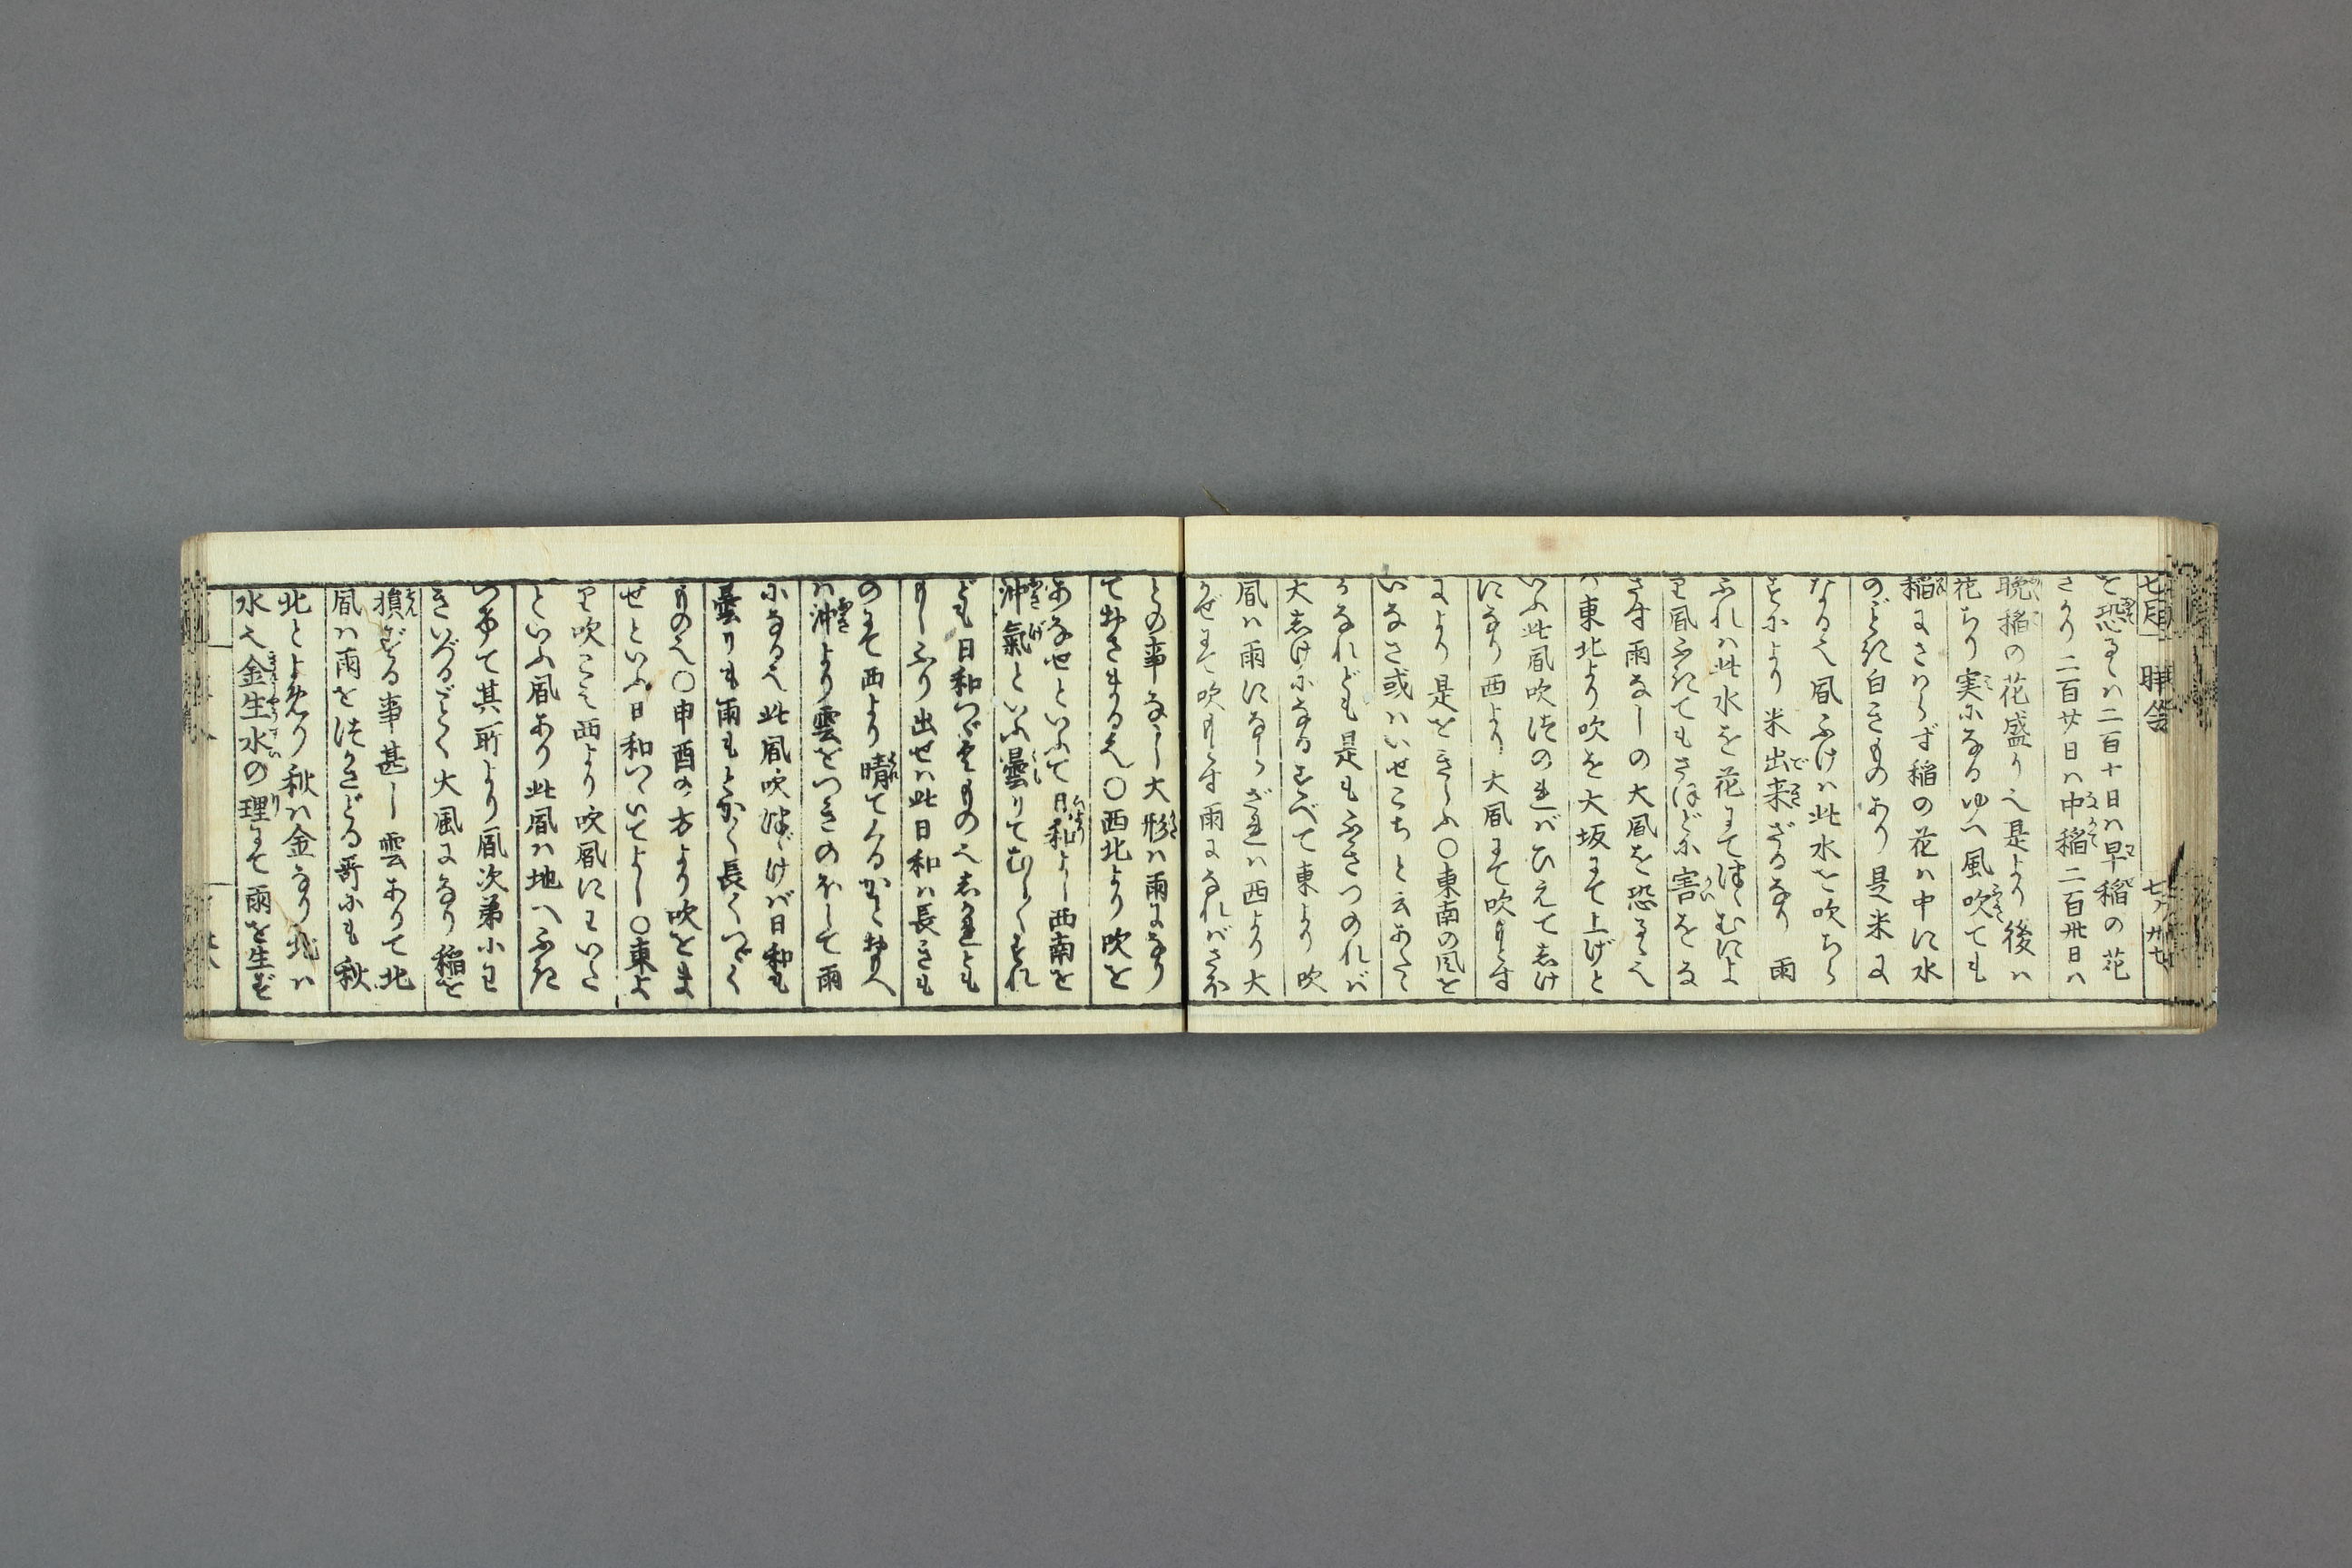 七月 聨句 七ノ廿七
を恐るゝハ二百十日ハ早稲の花
さかり二百廿日ハ中稲二百卅日ハ
晩稲の花盛り也是より後ハ
花ちり実になるゆへ風吹ても
稲にさハらず稲の花ハ中に水
のごとき白きものあり是米に
なる也風ふけハ此水を吹ちら
すにより米出来ざるなり 雨
ふれハ此水を花にてほゝむによ
り風ふきてもさほどに害をな
さず雨なしの大風を恐るゝ也
ハ東北より吹を大坂にて上げと
いふ此風吹つのれバひえてしけ
になり西より大風にて吹もどす
により是をきらふ〇東南の風を
いなさ或ハいせこちと云あたゝ
かなれども是もふきつのれバ
大しけになるすべて東より吹
風ハ雨にならざれハ西より大
かぜにて吹もどす雨になればさハ
との事なし大形ハ雨になり
ておさまる也〇西北より吹を
あなせといふて日和よし西南を
沖氣といふ曇りてむしくすれ
ども日和つゞくもの也しかれとも
もしふり出せハ此日和ハ長きも
のにて西より晴てくるかと思へ
ハ沖より雲をつきのぼして雨
になる也此風吹つゞけバ日和も
曇りも雨もとかく長くつゞく
もの也〇申酉の方より吹をま
せといふ日和つゝいてよし〇東よ
り吹こミ西より吹風にまいた
といふ風あり此風ハ地へふき
つけて其所より風次第にま
きいづるごとく大風になり稲を
損ざる事甚し雲ありて北
風ハ雨をつかさどる哥にも秋
北とよめり秋ハ金なり北ハ
水也金生水の理にて雨を生ず